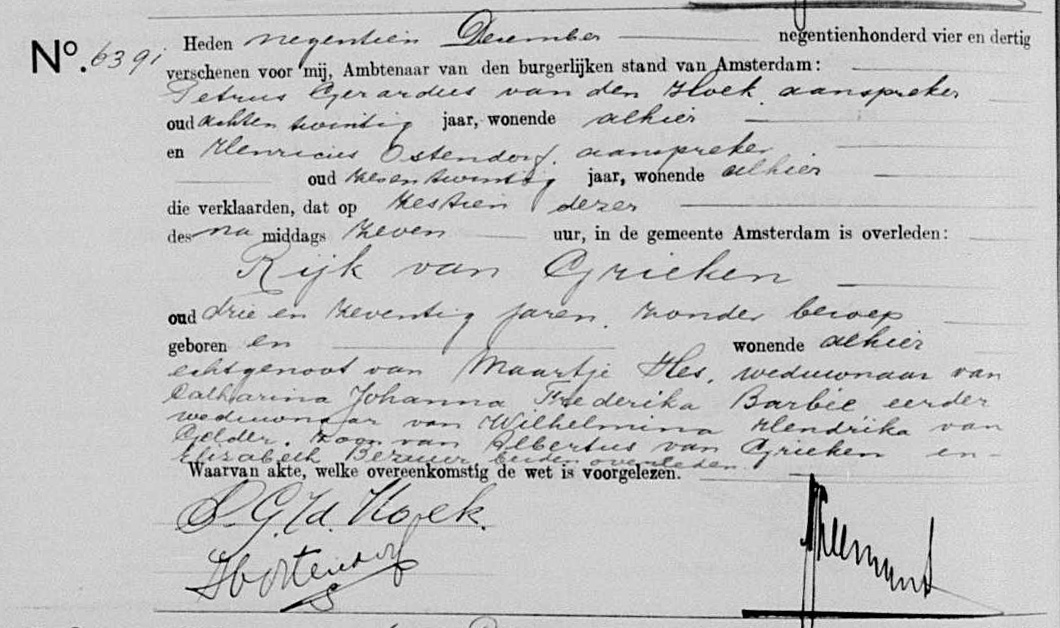 Nº. 6391
Heden negentien December negentienhonderd vier en dertig
verschenen voor mij, Ambtenaar van den burgerlijken stand van Amsterdam:
Petrus Gerardus van den Hoek, aanspreker
oud achten twintig jaar, wonende alhier
en Henricus Ostendorf, aanspreker
oud zesentwintig jaar, wonende alhier
die verklaarden, dat op zestien dezer
des na middags zeven uur, in de gemeente Amsterdam is overleden:
Rijk van Grieken
oud drie en zeventig jaren, zonder beroep
geboren en wonende alhier
echtgenoot van Maartje Hes, weduwnaar van
Catharina Johanna Frederika Barbée eerder
weduwnaar van Wilhelmina Hendrika van
Gelder, zoon van Albertus van Grieken en
Elizabeth beiden overleden.
Waarvan akte, welke overeenkomstig de wet is voorgelezen.
P. G. vd. Hoek.
HOstendorf